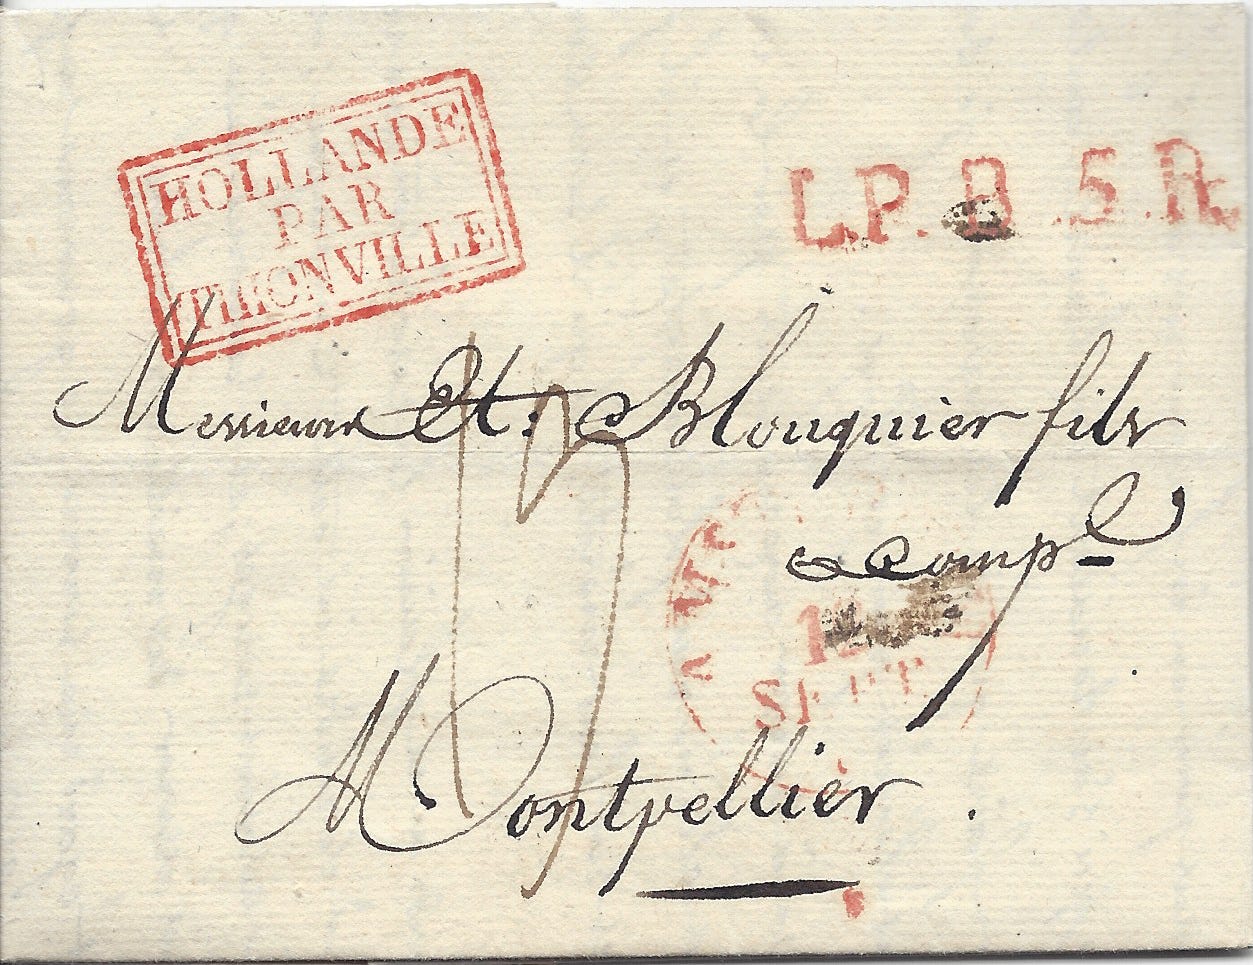 HOLLANDE
PAR
THIONVILLE
L.P.B.5.R.
Messieurs Et: Blouquier fils
& Comp.e
SEPT
Montpellier.